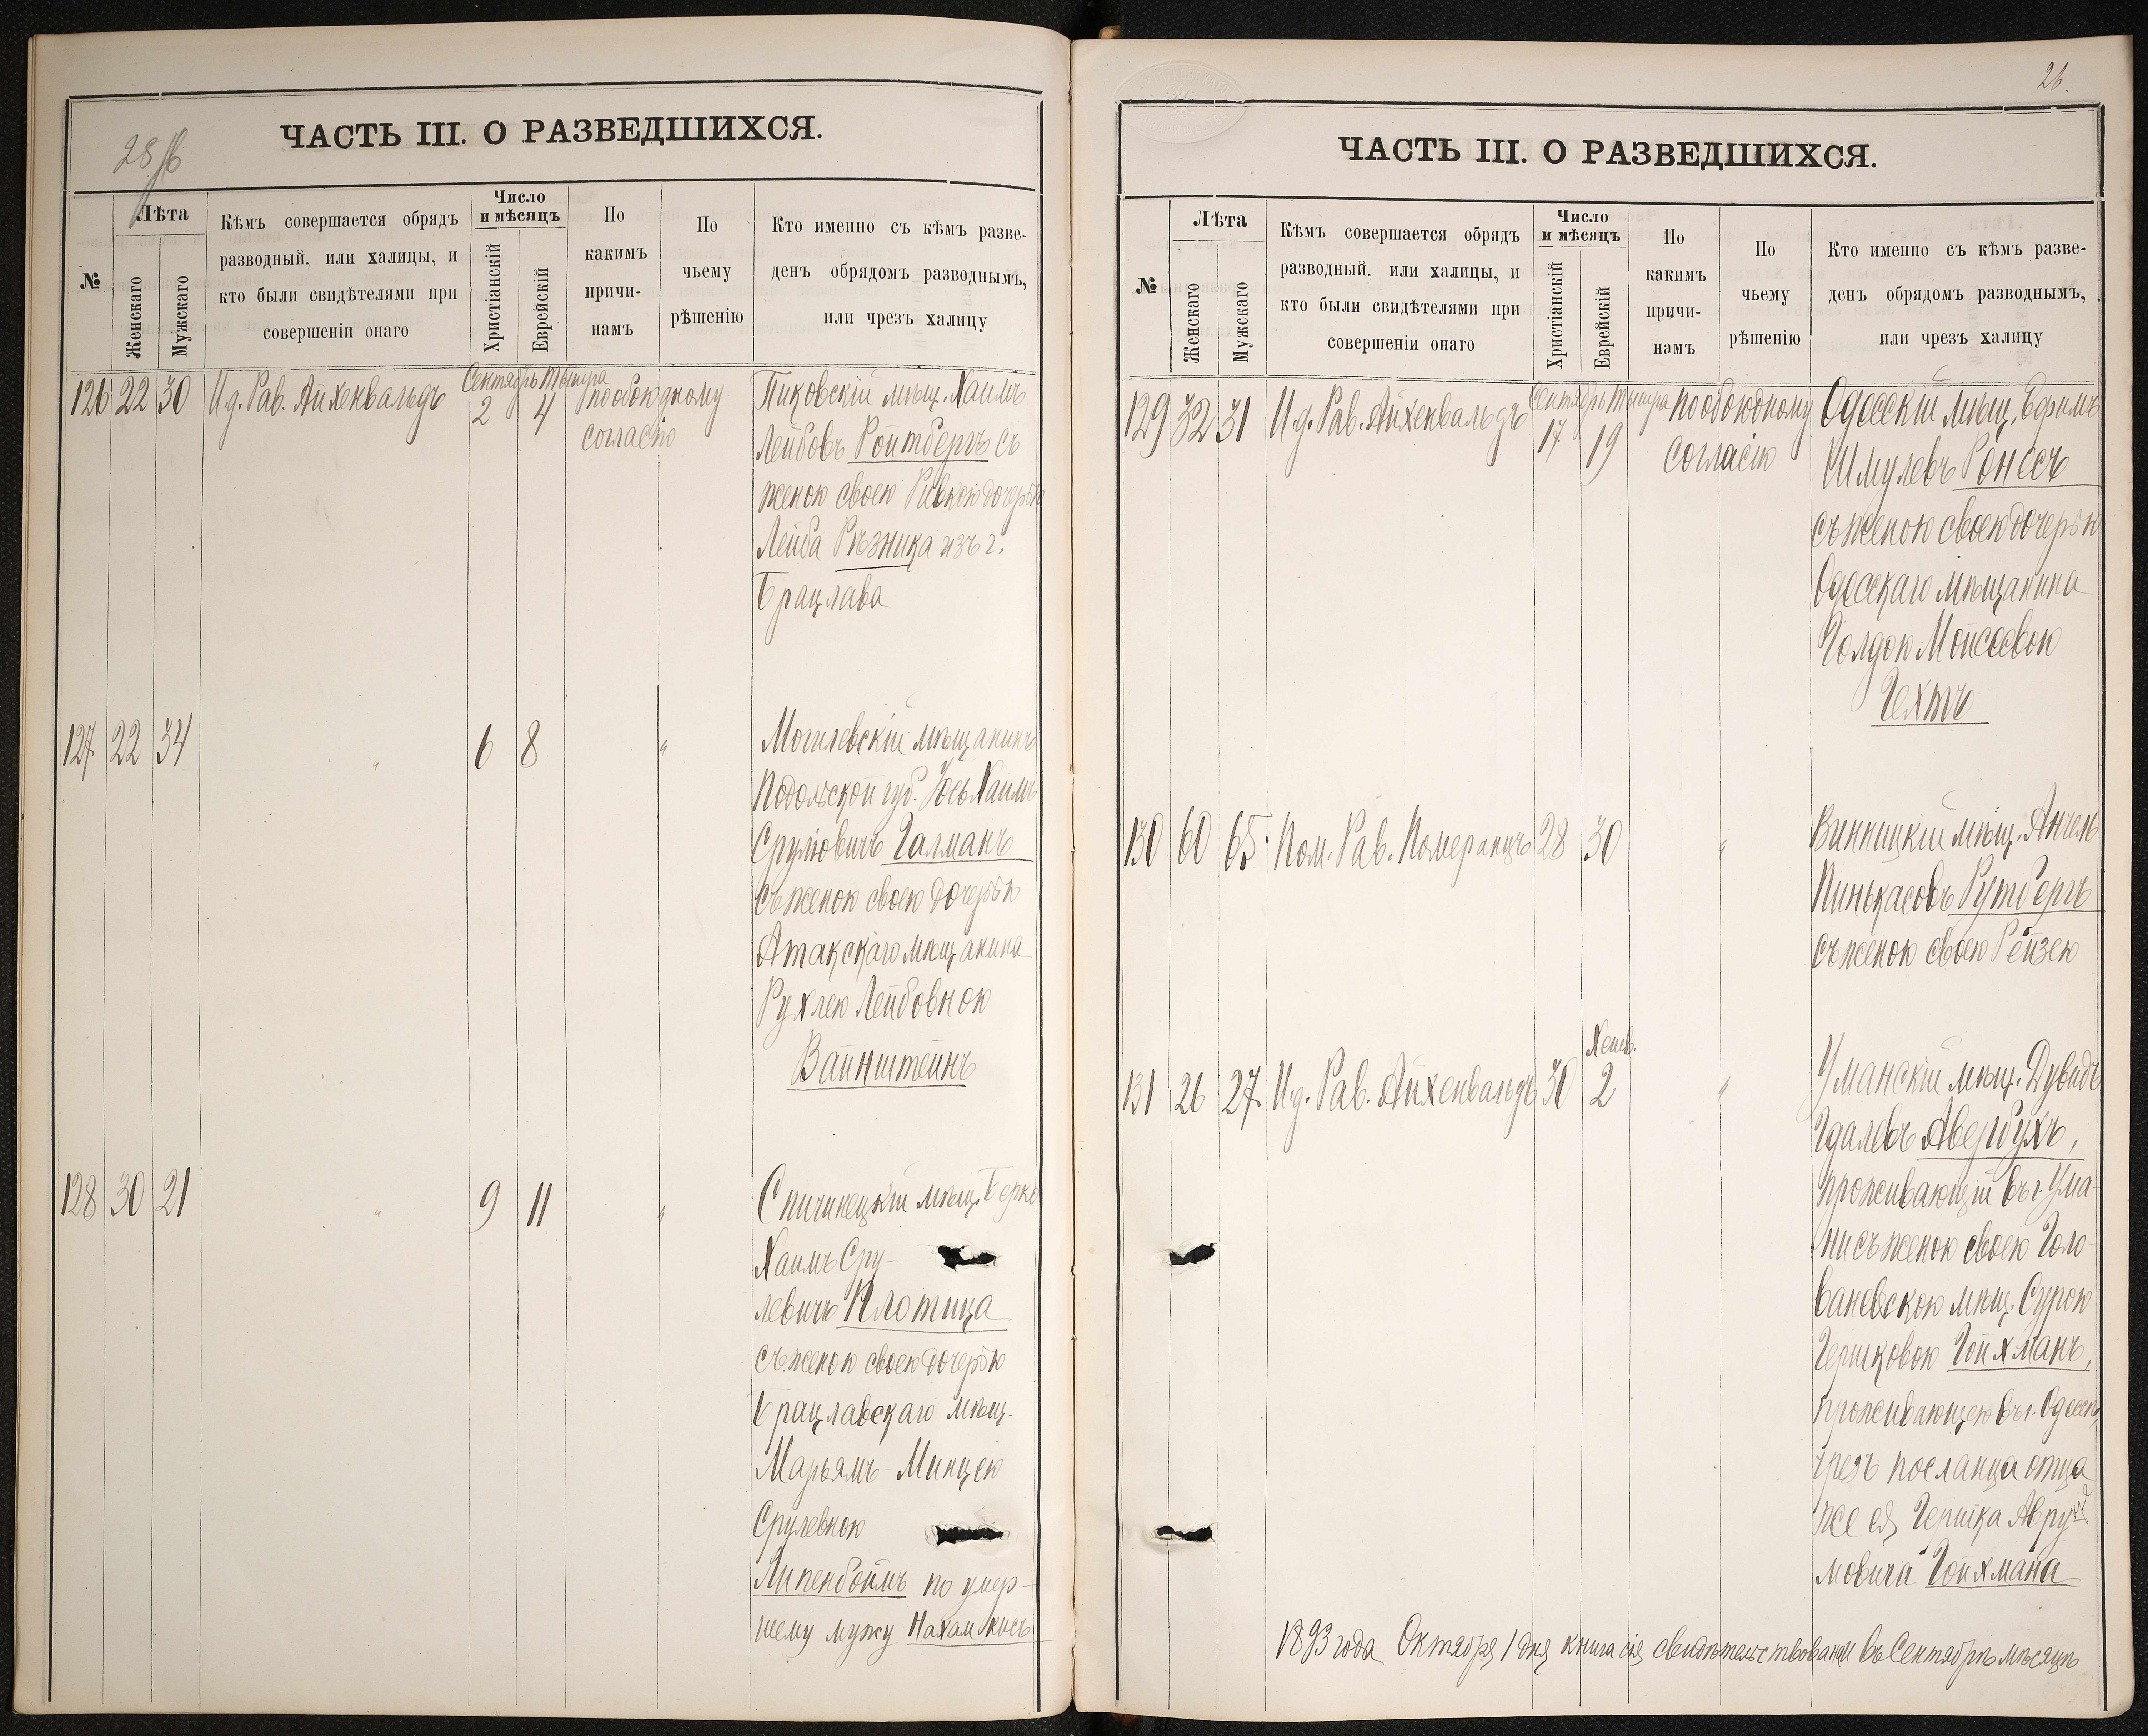 28
ЧАСТЬ III. О РАЗВЕДШИХСЯ.
№
Лѣта
Женскаго
Мужскаго
Кѣмъ совершается обрядъ
разводный, или халицы, и
кто были свидѣтелями при
совершеніи онаго
Число
и мѣсяцъ
Христіанскій
Еврейскій
По
какимъ
причи-
намъ
По
чьему
рѣшенію
Кто именно съ кѣмъ разве-
денъ обрядомъ разводнымъ,
или чрезъ халицу
126 22 30 И.д. Рав. Айхенвальдъ Сентябрь Тишра 2 4 по обоюдному
согласію
Пиковскій мѣщ. Хаимъ
Лейбовъ Ройтбергъ съ
женою своею Ривкою дочерью
Лейба Рѣзника изъ г.
Брацлава
127 22 34 " 6 8 "
Могилевскій мѣщанинъ
Подольской губ. Юсь Хаимъ
Сруліовичъ Галманъ
съ женою своею дочерью
Атакскаго мѣщанина
Рухлею Лейбовною
Вайнштейнъ
128 30 21 " 9 11 "
Спичинецкій мѣщ. Берко
Хаимъ Сру-
левичъ Плотица
съ женою своею дочерью
Брацлавскаго мѣщ.
Марьямъ-Минцею
Срулевною
Липенбоймъ по умер-
шему мужу Нахамкисъ
26.
ЧАСТЬ III. О РАЗВЕДШИХСЯ.
№
Лѣта
Женскаго
Мужскаго
Кѣмъ совершается обрядъ
разводный, или халицы, и
кто были свидѣтелями при
совершеніи онаго
Число
и мѣсяцъ
Христіанскій
Еврейскій
По
какимъ
причи-
намъ
По
чьему
рѣшенію
Кто именно съ кѣмъ разве-
денъ обрядомъ разводнымъ,
или чрезъ халицу
129 32 31 И.д. Рав. Айхенвальдъ Сентябрь Тишра 17 19 по обоюдному
согласію
Одесскій мѣщ. Ефимъ
Шмулевъ Ронесъ
съ женою своею дочерью
Одесскаго мѣщанина
Голдою Мойсеевою
Гехтъ
130 60 65. Пом. Рав. Померанцъ 28 30 "
Винницкій мѣщ. Анчель
Пинькасовъ Рутбергъ
съ женою своею Рейзею
Хешв.
131 26 27. И.д. Рав. Айхенвальдъ 30 2 "
Уманскій мѣщ. Дувидъ
Гдалевъ Авербухъ,
проживающій въ г. Ума-
ни съ женою своею Голо-
ваневскою мѣщ. Сурою
Гершковою Гойхманъ,
проживающею въ г. Одессѣ,
чрезъ посланца отца
же ея Гершка Авру
мовича Гойхмана
1893 года Октября 1 дня книга сія свидѣтельствована въ Сентябрѣ мѣсяцѣ